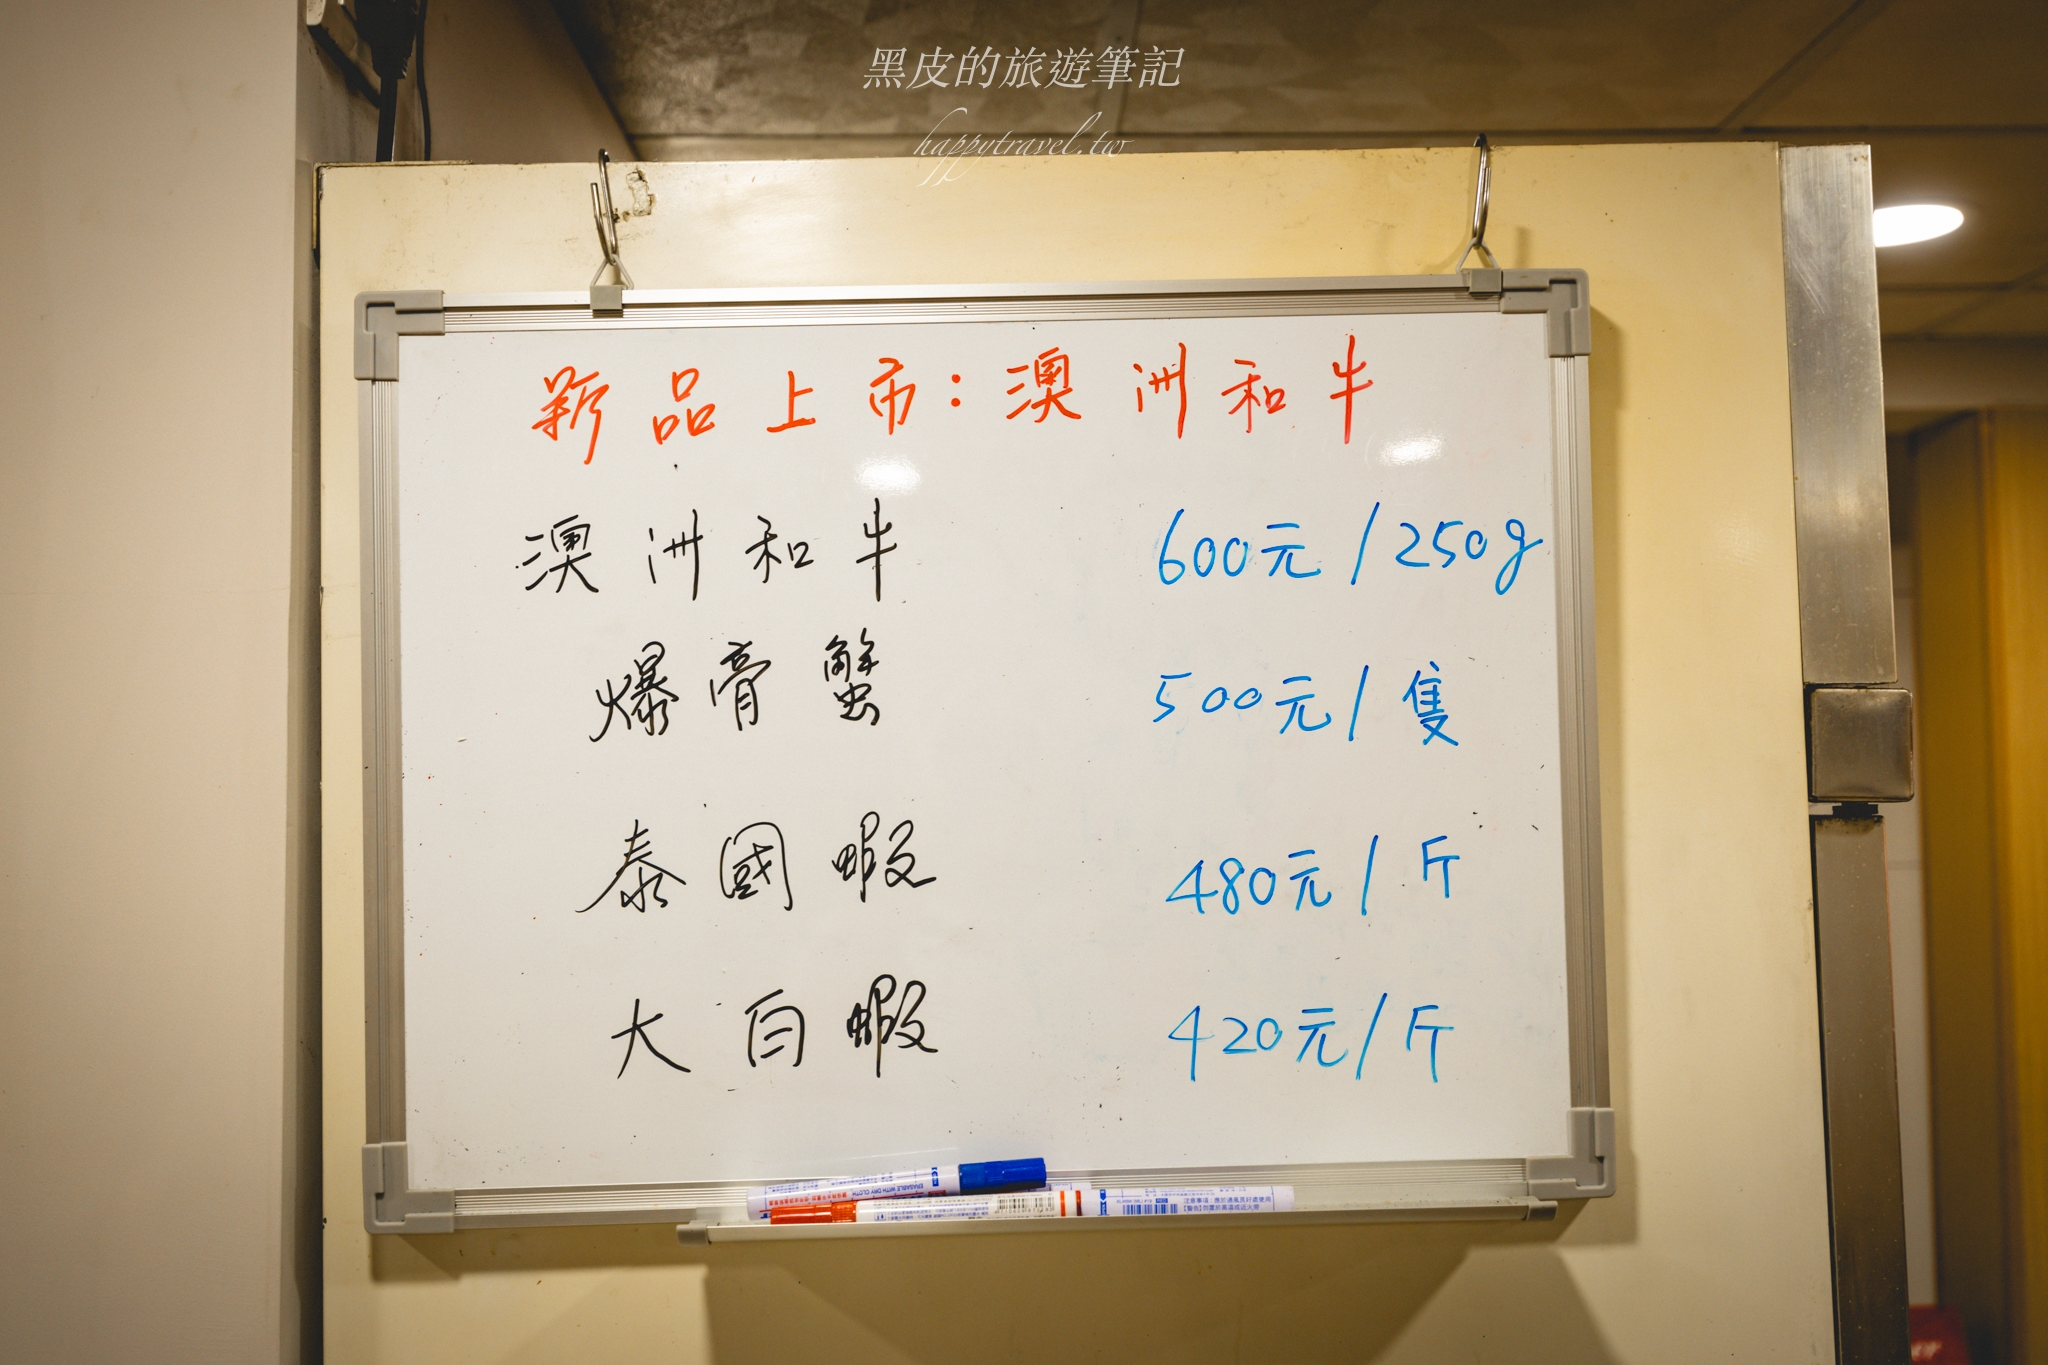 黑皮的旅遊筆記
happytravel.tw
新品上市：澳洲和牛
澳洲和牛 600元/250g
爆膏蟹 500元/隻
泰國蝦 480元/斤
大白蝦 420元/斤
ERASABLE WITH DRY CLOTH